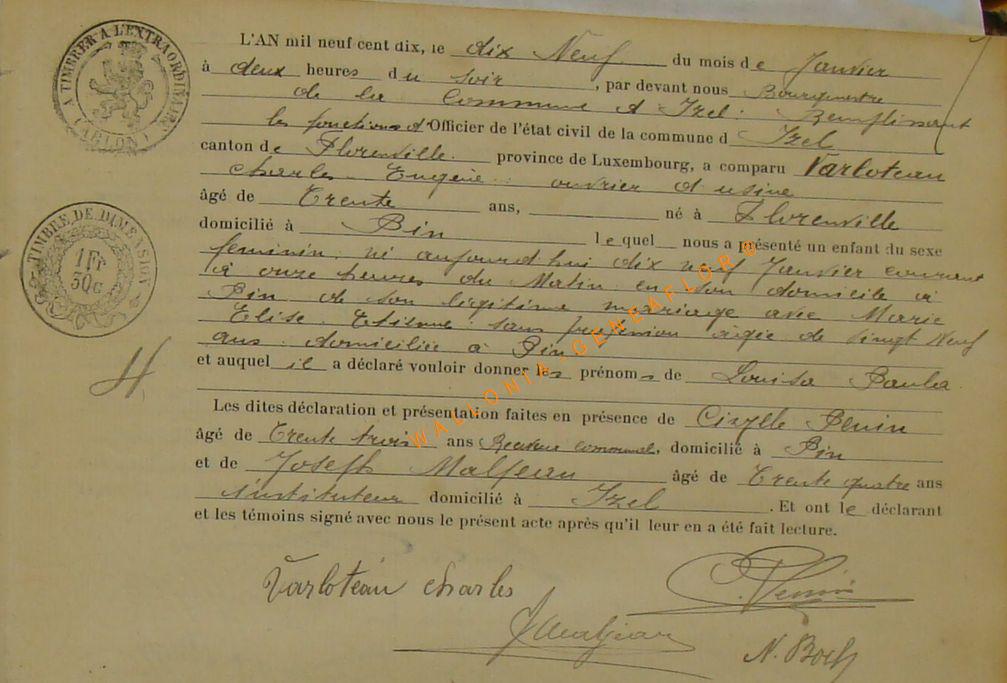 A TIMBRER A L'EXTRAORDINAIRE
(ARLON)
TIMBRE DE DIMENSION
1 Fr
30c
L'AN mil neuf cent dix, le dix Neuf du mois de Janvier
à deux heures du soir, par devant nous Bourgmestre
de la Commune d'Izel. Remplissant
les fonctions d'Officier de l'état civil de la commune d Izel
canton de Florenville. province de Luxembourg, a comparu Varloteau
Charles Eugène ouvrier d'usine
âgé de Trente ans, né à Florenville
domicilié à Pin lequel nous a présenté un enfant du sexe
feminin, né aujourd'hui dix neuf Janvier courant
à onze heures du Matin en son domicile à
Pin de son légitime mariage avec Marie
Elise sans profession âgée de Vingt Neuf
ans domiciliée à Pin
et auquel il a déclaré vouloir donner les prénoms de Louisa Paula
Les dites déclaration et présentation faites en présence de Penin
âgé de Trente trois ans Receveur communal, domicilié à Pin
et de Joseph Maljean âgé de Trente quatre ans
instituteur domicilié à Izel. Et ont le déclarant
et les témoins signé avec nous le présent acte après qu'il leur en a été fait lecture.
Varloteau Charles
C. Penin
J Maljean
N. Boch
WALLONIA GENEAFLOR ©